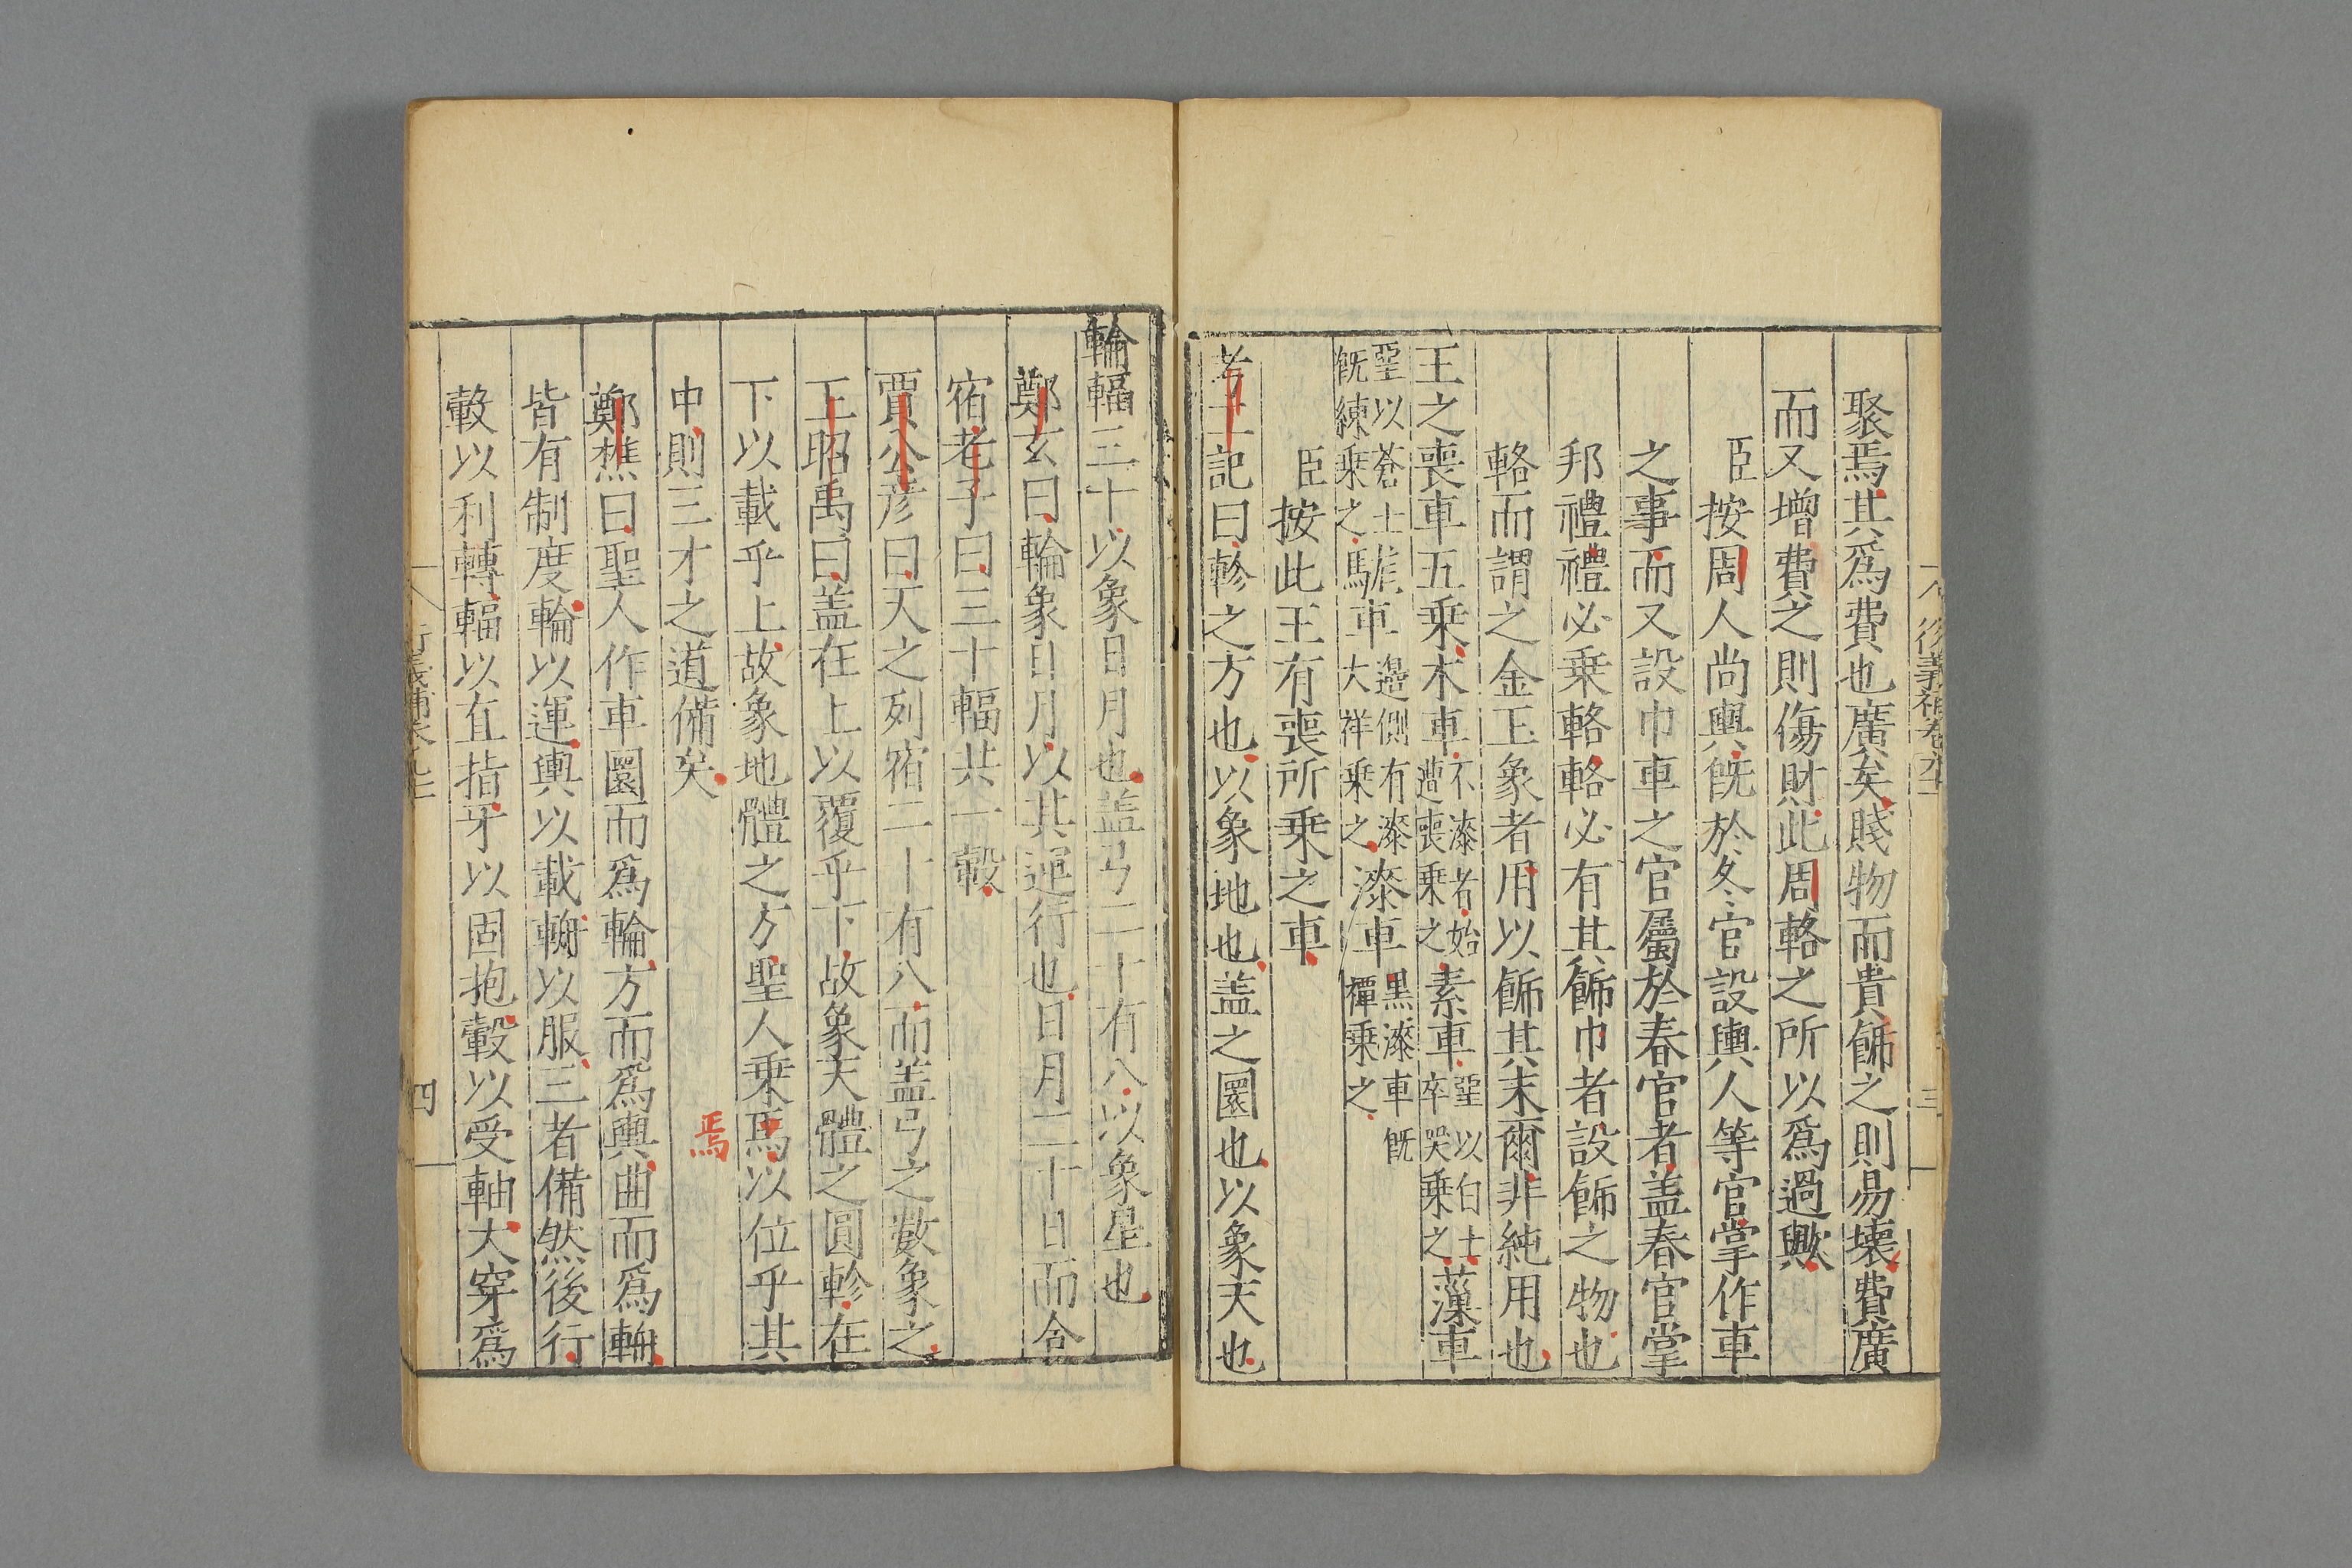 聚焉其爲費也廣矣賤物而貴餙之則易壊費廣
而又增費之則傷財此周輅之所以爲過歟
臣按周人尚輿旣於冬官設輿人等官掌作車
之事而又設巾車之官屬於春官者盖春官掌
邦禮禮必乗輅輅必有其餙巾者設餙之物也
輅而謂之金玉象者用以餙其末爾非純用也
王之喪車五乗木車不漆者始遭喪乗之素車堊以白土卒哭乗之薻車
堊以蒼土旣練乗之駹車邉側有漆大祥乗之漆車黒漆車旣禫乗之
臣按此王有喪所乗之車
考工記曰軫之方也以象地也盖之圜也以象天也
輪輻三十以象日月也盖弓二十有八以象星也
鄭玄曰輪象日月以其運行也日月三十日而合
宿老子曰三十輻共一轂
賈公彦曰天之列宿二十有八而盖弓之數象之
王昭禹曰盖在上以覆乎下故象天體之圓軫在
下以載乎上故象地體之方聖人乗焉以位乎其
焉
中則三才之道備矣
鄭樵曰聖人作車圜而爲輪方而爲輿曲而爲輈
皆有制度輪以運輿以載輈以服三者備然後行
轂以利轉輻以直指牙以固抱轂以受軸大穿爲
四
三